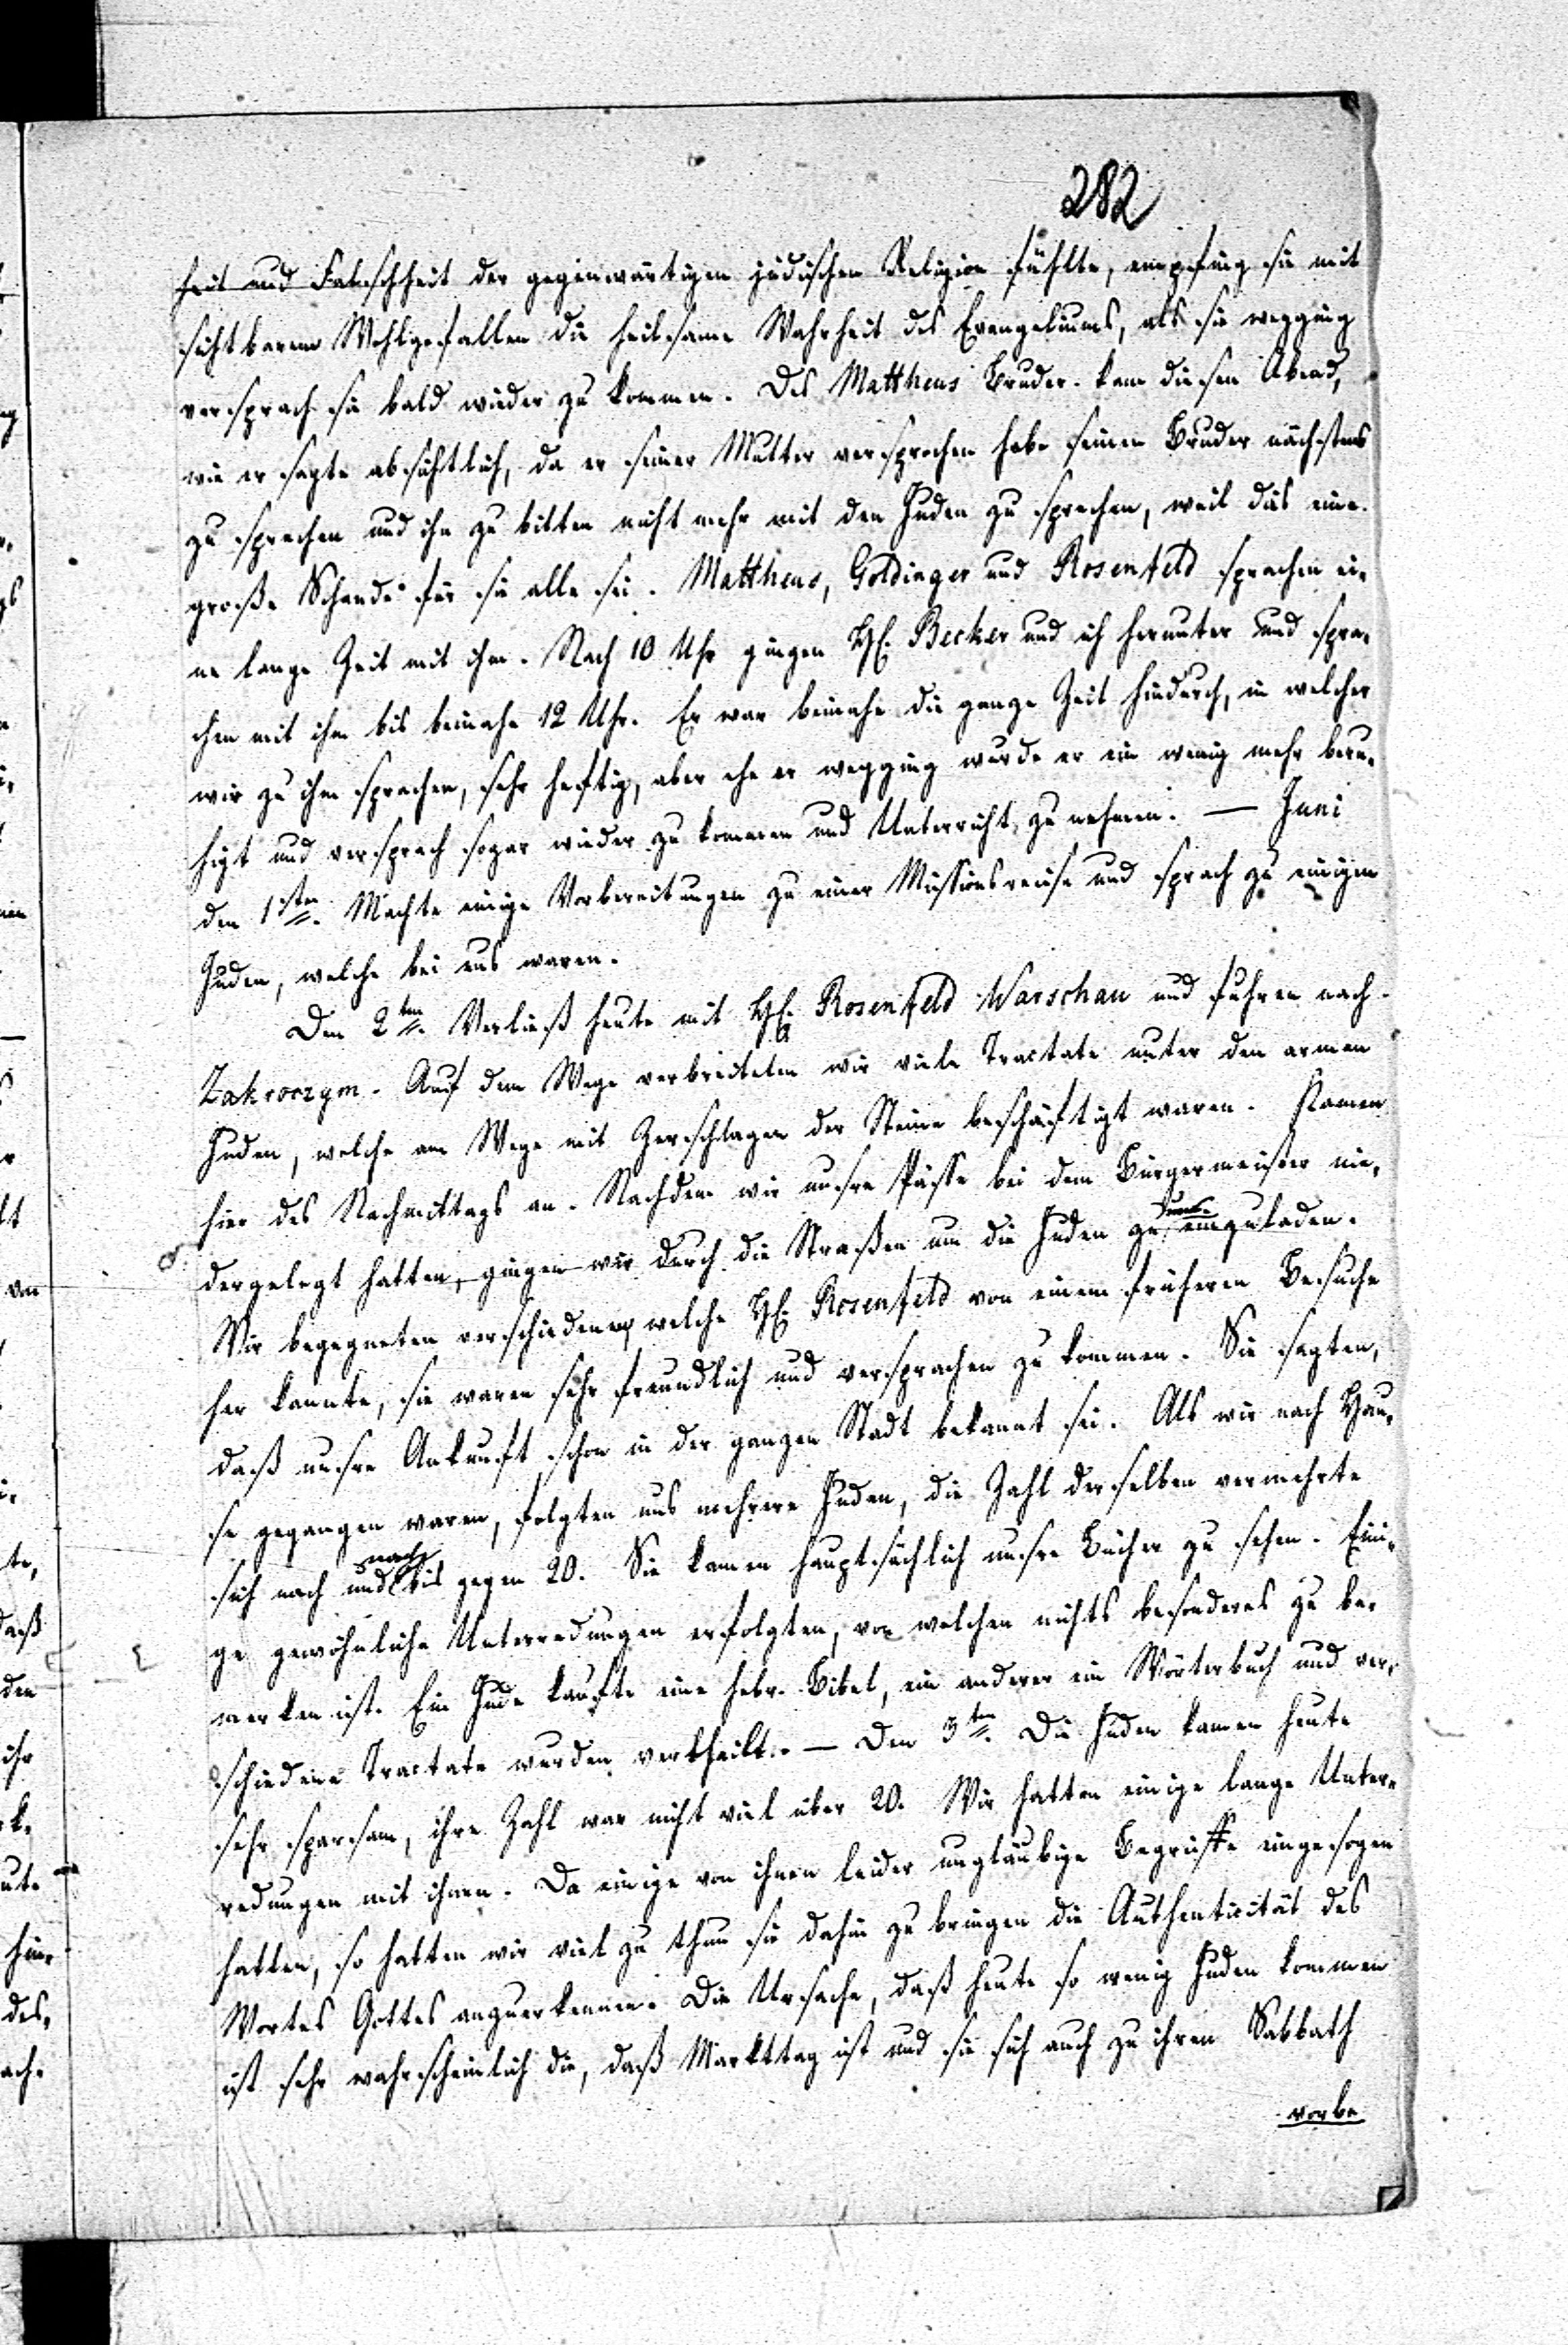 282
heit und Falschheit der gegenwärtigen jüdischen Religion fühlte, empfing sie mit
sichtbarem Wohlgefallen die heilsame Wahrheit des Evangeliums, als sie wegging
versprach sie bald wieder zu kommen. Des Mattheus Bruder kam diesen Abend,
wie er sagte absichtlich, da er seiner Mutter versprochen habe seinen Bruder nächstens
zu sprechen und ihn zu bitten nicht mehr mit den Juden zu sprechen, weil dies eine
große Schande für sie alle sei. Mattheus, Goldinger und Rosenfeld sprachen ei-
ne lange Zeit mit ihm. Nach 10 Uhr gingen H. Becker und ich herunter und spra-
chen mit ihm bis beinahe 12 Uhr. Er war beinahe die ganze Zeit hindurch, in welcher
wir zu ihm sprachen, sehr heftig, aber ehe er wegging wurde er ein wenig mehr beru-
higt und versprach sogar wieder zu kommen und Unterricht zu nehmen. — Juni
den 1sten. Machte einige Vorbereitungen zu einer Missionsreise und sprach zu einigen
Juden, welche bei uns waren.
Den 2ten. Verließ heute mit H. Rosenfeld Warschau und fuhren nach
Zakroczym. Auf dem Wege verbreiteten wir viele Tractate unter den armen
Juden, welche am Wege mit Zerschlagen der Steine beschäftigt waren. Kamen
hier des Nachmittags an. Nachdem wir unsre Pässe bei dem Bürgermeister nie-
dergelegt hatten, gingen wir durch die Straßen um die Juden zu einzuladen.
Wir begegneten verschiedenen welche H. Rosenfeld von einem früheren Besuche
her kannte, sie waren sehr freundlich und versprachen zu kommen. Sie sagten,
daß unsre Ankunft schon in der ganzen Stadt bekannt sei. Als wir nach Hau-
se gegangen waren, folgten uns mehrere Juden, die Zahl derselben vermehrte
sich nach und nach bis gegen 20. Sie kamen hauptsächlich unsre Bücher zu sehen. Eini-
ge gewöhnliche Unterredungen erfolgten, von welchen nichts besonderes zu be-
merken ist. Ein Jude kaufte eine hebr. Bibel, ein anderer ein Wörterbuch und ver-
schiedene Tractate wurden vertheilt. — Den 3ten. Die Juden kamen heute
sehr sparsam, ihre Zahl war nicht viel über 20. Wir hatten einige lange Unter-
redungen mit ihnen. Da einige von ihnen leider ungläubige Begriffe eingesogen
hatten, so hatten wir viel zu thun sie dahin zu bringen die Authenticität des
Wortes Gottes anzuerkennen. Die Ursache, daß heute so wenig Juden kommen
ist sehr wahrscheinlich die, daß Markttag ist und sie sich auch zu ihren Sabbath
vorbe